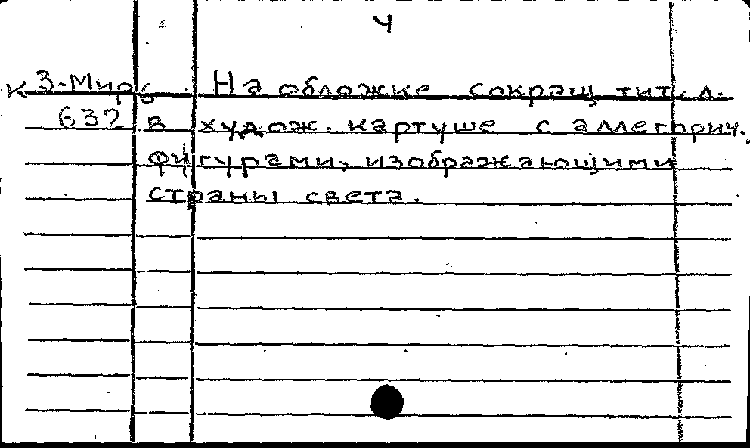 4
К 3-Мир
632
На обложке сокращ. тит. л.
в худож. картуше с аллегорич.
фигурами, изображающими
страны света.